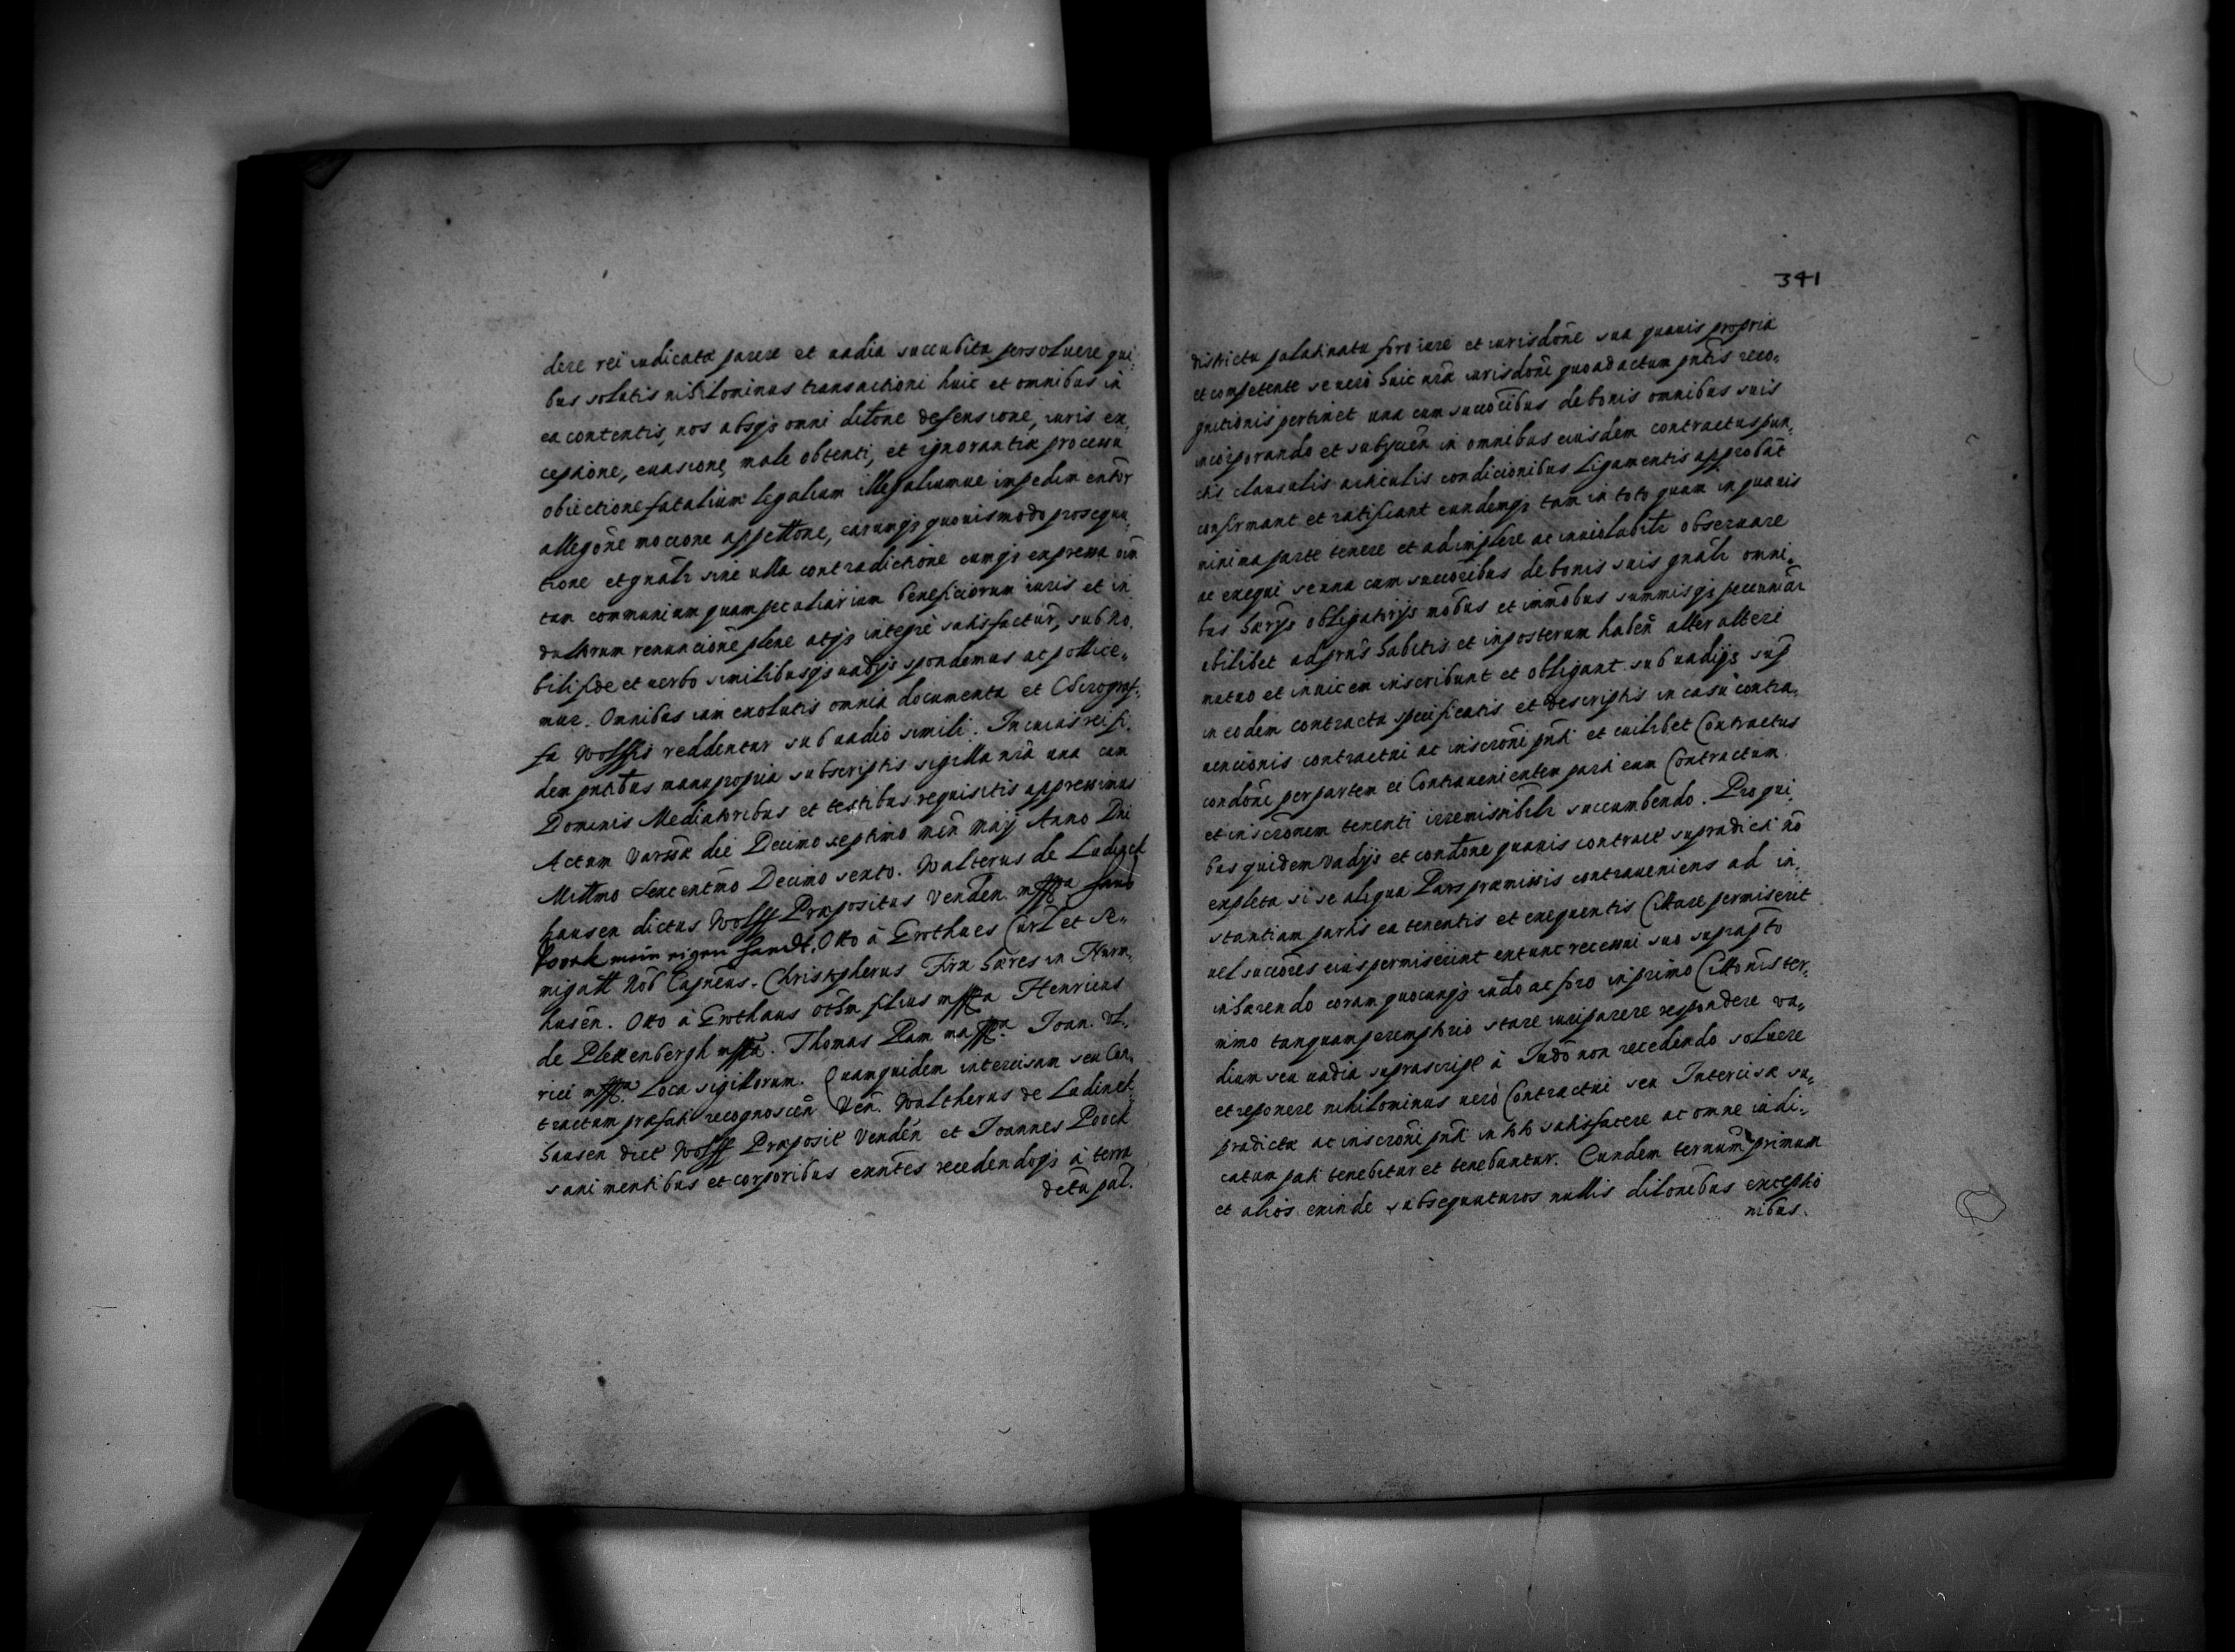 dere rei iudicatæ parere et uadia succubita persoluere qui,
bus solutis nihilominus transactioni huic et omnibus in
ea contentis, nos absq; omni dilōne defensione, iuris ex,
ceptione, euasione, male obtenti, et ignorantiæ processu
obiectione fatalium legalium illegaliumue impedimentōr
allegōne mocione appellōne, earumq; quouismodo prosequu,
tione et gnālr sine ulla contradictione cumq; expressa oīm
tam communium quam peculiarium beneficiorum iuris et in
dultorum renuncione plene atq; integrè satisfactur, sub no,
bili fide et uerbo similibusq; uadijs spondemus ac pollice,
mur. Omnibus iam exolutis omnia documenta et Chirograf,
fa Wolffio reddentur sub uadio simili. In cuius rei fi,
dem pntibus manu propria subscriptis sigilla nrā una cum
Dominis Mediatoribus et testibus requisitis appressimus
Actum Varsæ die Decimo septimo Men Maij Anno Dni
Millmo Sexcentmo Decimo sexto. Walterus de Ludinck
hausen dictus Wolff Præpositus Venden. mppa
Poock mein eigen handt. Otto à Grothues Curl et Se,
migall Nob Capneus. Christopherus Firx hæres in Nurm,
husen. Otto à Grothaus filius mppa Henricus
de Plettenbergh mppa. Thomas Ram mappa. Ioan. Vl,
rici mppa. Loca sigillorum. Quamquidem intercisam seu Con,
tractum præfati recognoscen Ven. Waltherus de Ludinck
hausen dict Wolff Præposit Venden et Joannes Poock
sani mentibus et corporibus exntes recedendoq; à terra
dctū pal.
341
districtu palatinatu foro iure et iurisdōne sua quauis propria
et competente se uerò huic nrā iurisdōni quo ad actum pntis reco,
gnitionis pertinet una cum succōribus de bonis omnibus suis
incorporando et subijcien in omnibus eiusdem contractus pun,
ctis clausulis articulis condicionibus ligamentis approbāt
confirmant et ratificant eundemq; tam in toto quam in quauis
minima parte tenere et adimplere ac inuiolabilr obseruare
ac exequi se una cum succōribus de bonis suis gnālr omni,
bus hærijs obligatorijs mōbus et immōbus summisq; pecuniār
ubilibet ad prns habitis et inposterum habēn alter alteri
mutuo et inuicem inscribunt et obligant sub uadijs sup
in eodem contractu specificatis et descriptis in casu contra,
uencionis contractui ac inscrōni pnti et cuilibet Contractus
condōni per partem ei Contrauenientem parti eum Contractum
et inscrōnem tenenti irremissibilr succumbendo. Pro qui,
bus quidem Vadijs et condōne quauis contract supradicti nō
expleta si se aliqua Pars præmissis contraueniens ad in,
stantiam partis ea tenentis et exequentis Cittare permiserit
uel succōres eius permiserint extunc recessui suo suprapto
inhærendo coram quocunq; iudo ac foro in primo Cittōnis ter,
mino tanquam peremptorio stare iuri parere respondere va,
dium seu uadia suprascript à Iudo non recedendo soluere
et reponere nihilominus uerò Contractui seu Intercisæ su,
pradictæ ac inscrōni pnti in toto satisfacere ac omne iudi,
catum pati tenebitur et tenebuntur. Eundem ternum primum
et alios exinde subsequuturos nullis dilōnibus exceptio
nibus.